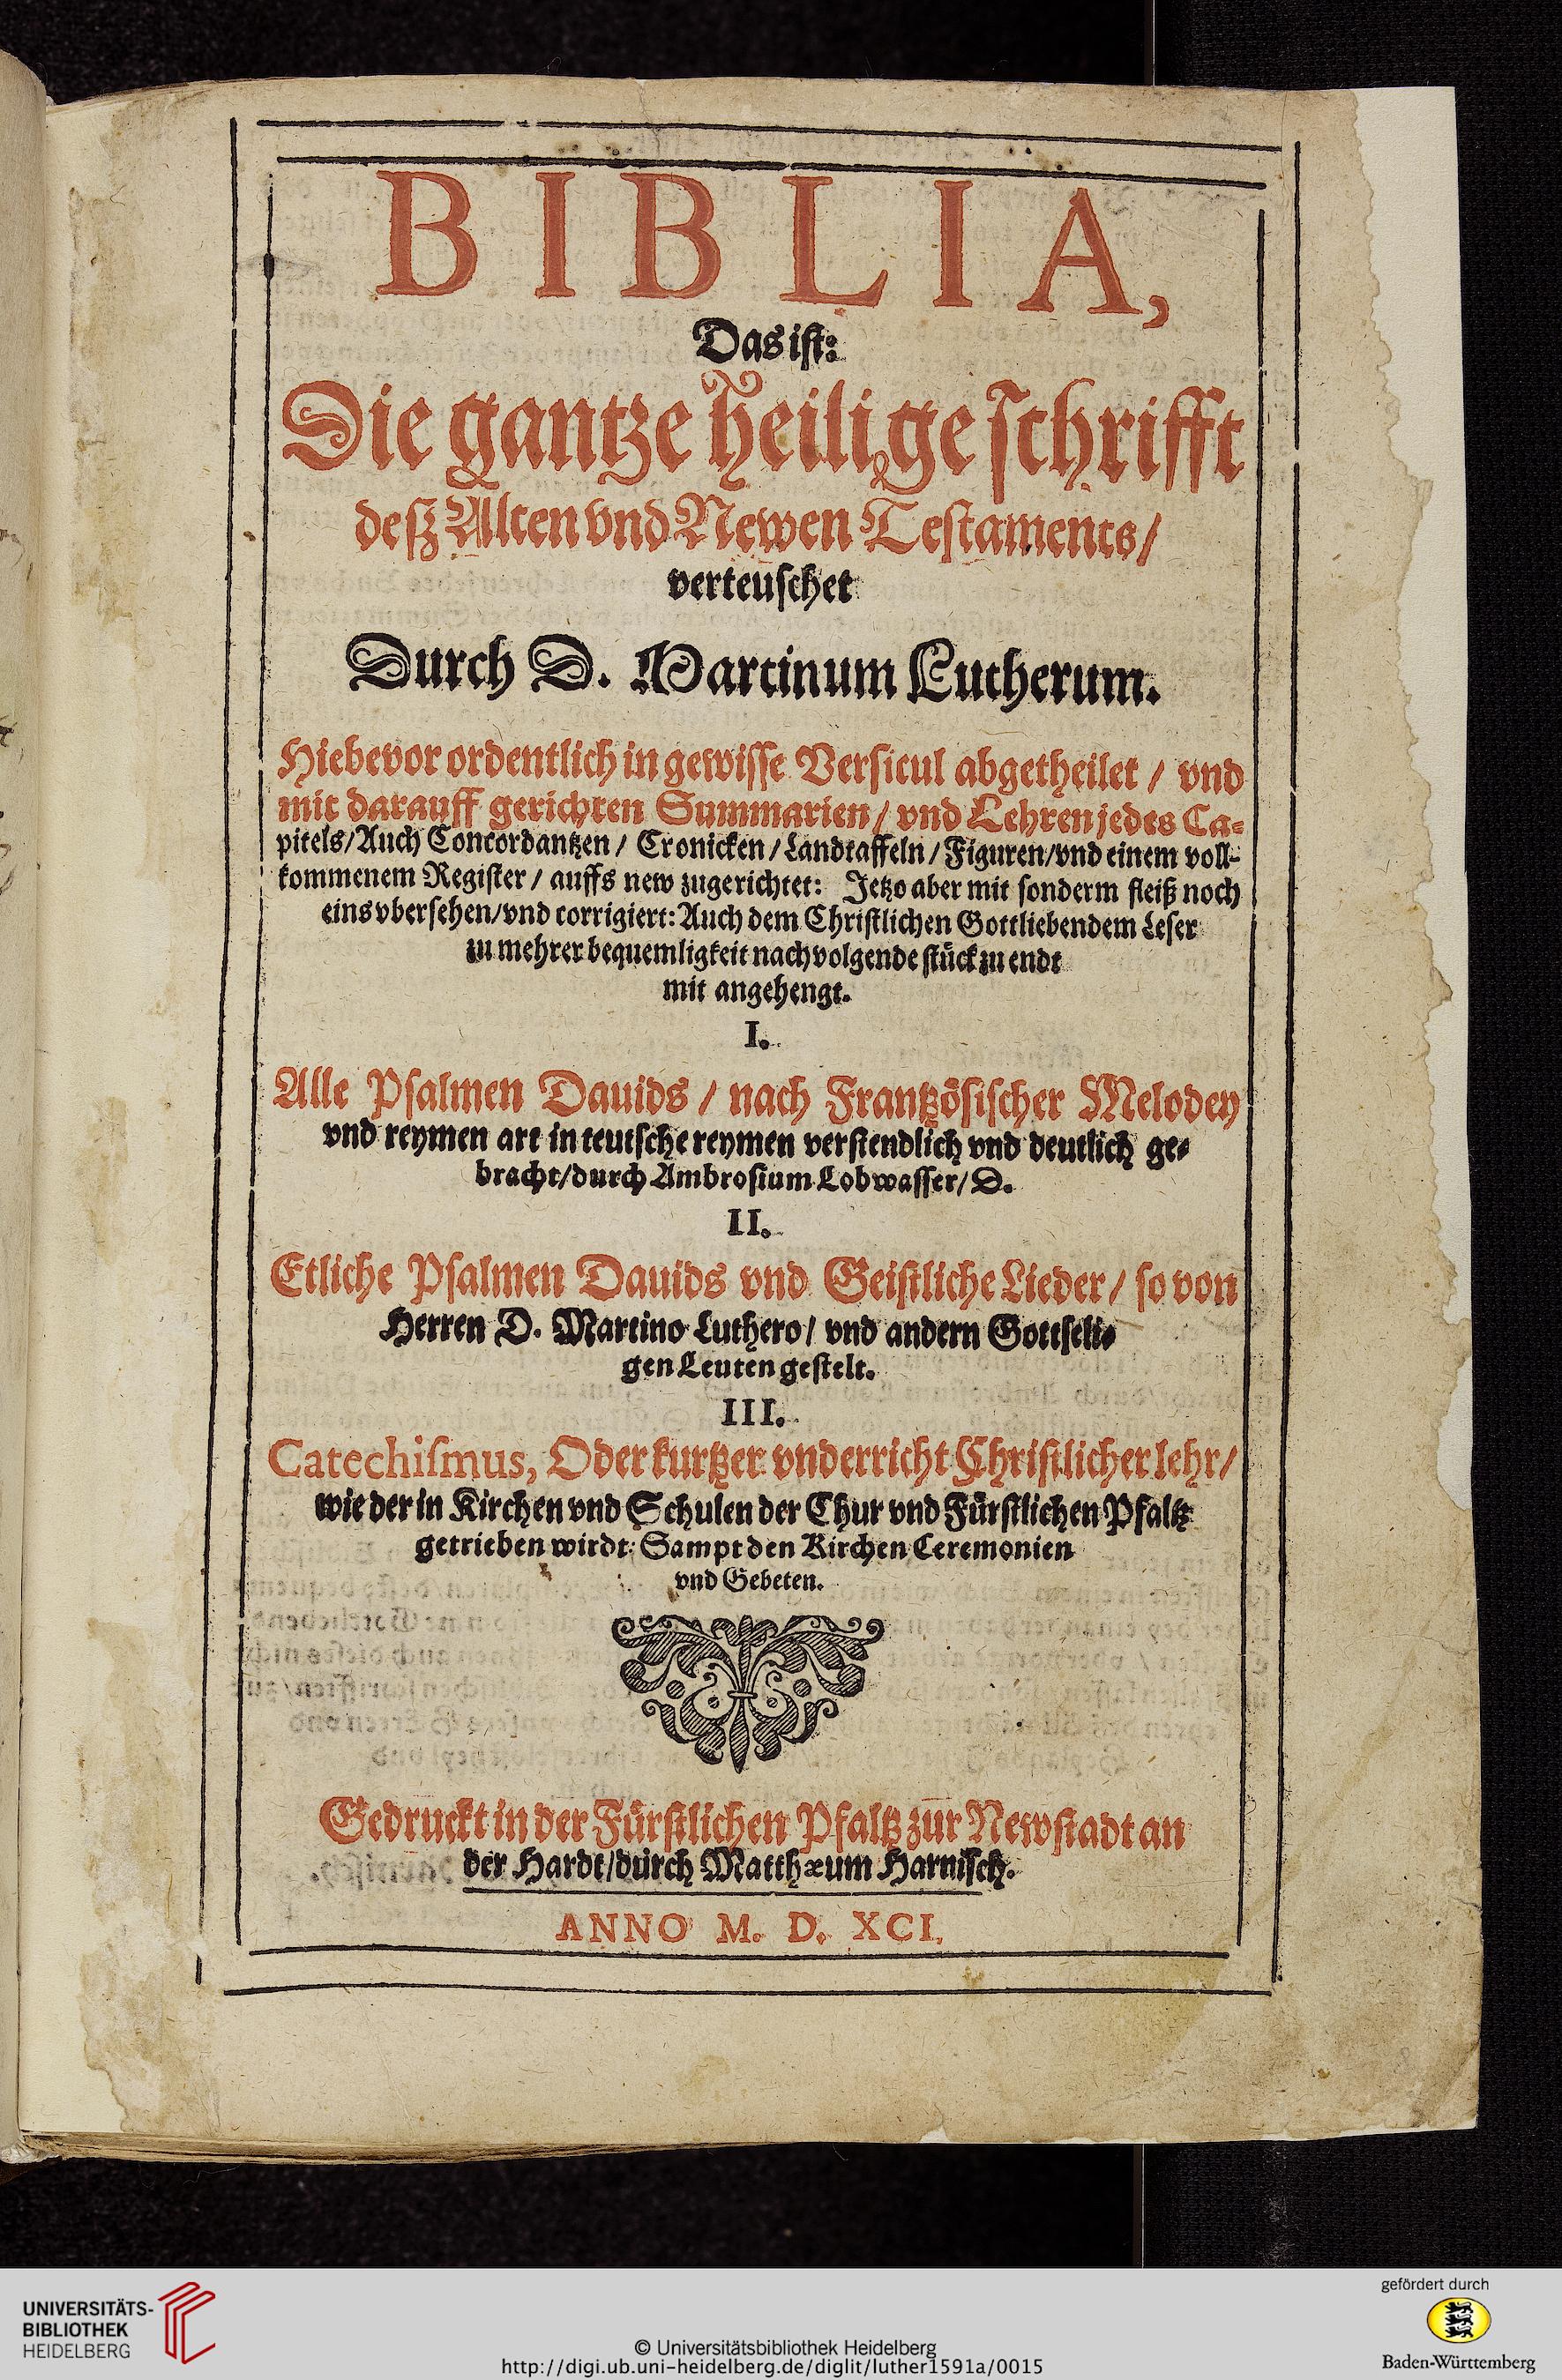 BIBLIA,
Das ist:
Die gantze Heilige schrifft
deß Alten vnd Newen Testaments/
verteuschet
Durch D. Martinum Lutherum.
Hiebevor ordentlich in gewisse Versicul abgetheilet / vnd
mit darauff gerichten Summarien / vnd Lehren jedes Ca-
pitels/Auch Concordantzen / Cronicken / Landtaffeln / Figuren/vnd einem voll-
kommenem Register / auffs new zugerichtet: Jetzo aber mit sonderm fleiß noch
eins vbersehen/vnd corrigiert: Auch dem Christlichen Gottliebendem Leser
zu mehrer bequemligkeit nachvolgende stück zu endt
mit angehengt.
I.
Alle Psalmen Dauids / nach Frantzösischer Melodey
vnd reymen art in teutsche reymen verstendlich vnd deutlich ge-
bracht/durch Ambrosium Lobwasser/ D.
II.
Etliche Psalmen Dauids vnd Geistliche Lieder / so von
Herren D. Martino Luthero / vnd andern Gottseli-
gen Leuten gestelt.
III.
Catechismus, Oder kurtzer vnderricht Christlicher lehr/
wie der in Kirchen vnd Schulen der Chur vnd Fürstlichen Pfaltz
getrieben wirdt: Sampt den Kirchen Ceremonien
vnd Gebeten.
Gedruckt in der Fürstlichen Pfaltz zur Newstadt an
der Hardt/durch Matthæum Harnisch.
ANNO M. D. XCI.
UNIVERSITÄTS-
BIBLIOTHEK
HEIDELBERG
© Universitätsbibliothek Heidelberg
http://digi.ub.uni-heidelberg.de/diglit/luther1591a/0015
gefördert durch
Baden-Württemberg